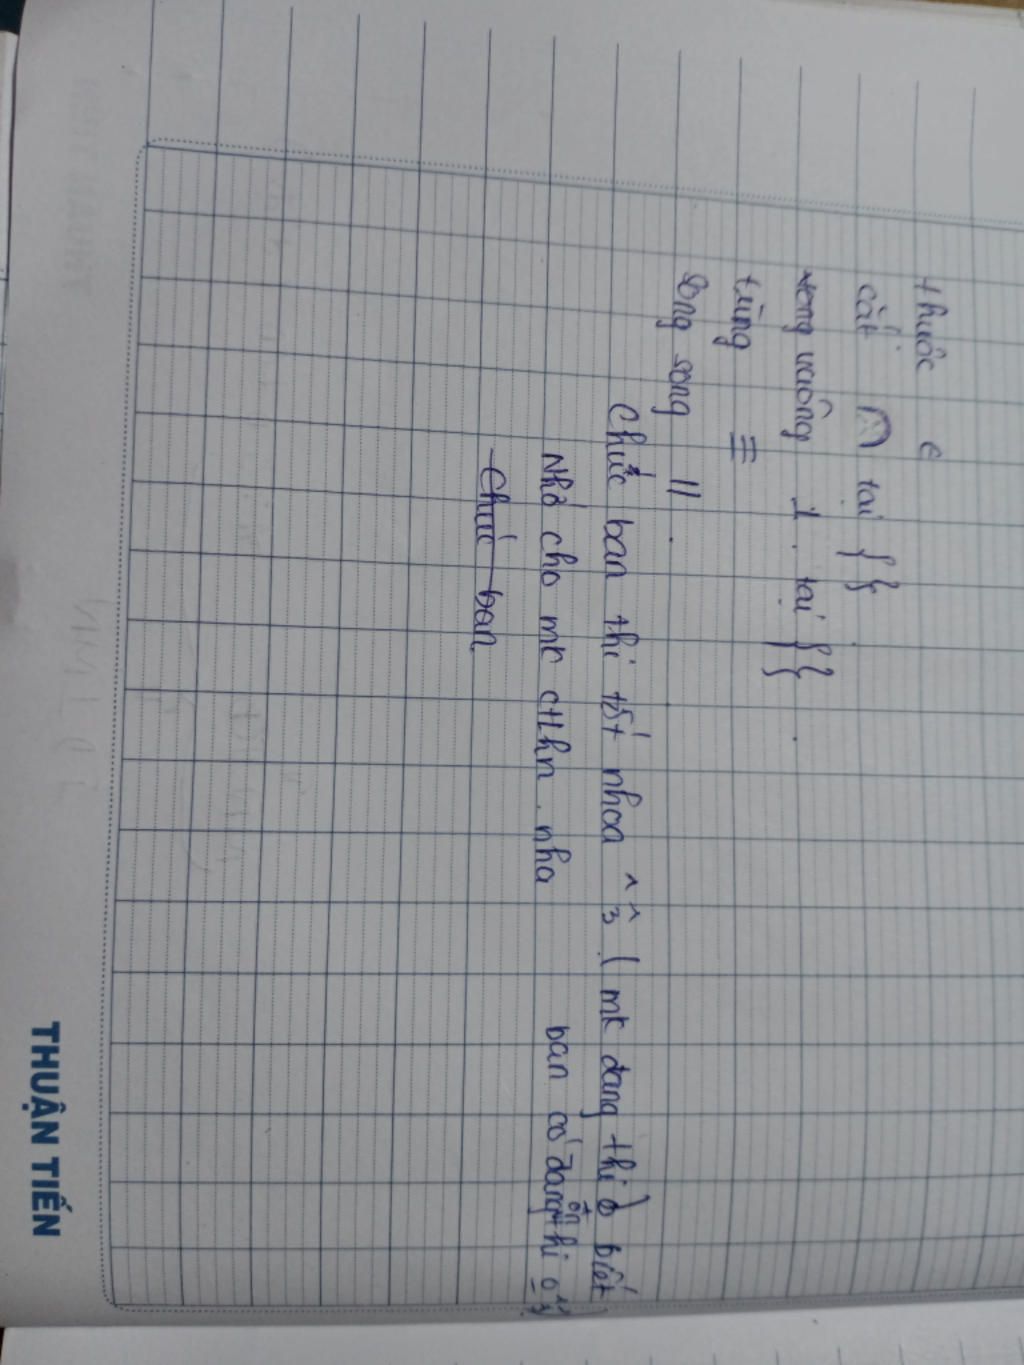 thuộc ∈
cắt ∩ tại { }
vuông ⊥ tại { }
trùng ≡
song song //
Chúc bạn thi tốt nhoa ^3^ ( mk đang thi
Nhớ cho mk cthn nha
bạn có đang ôn thi
Chúc bạn
THUẬN TIẾN